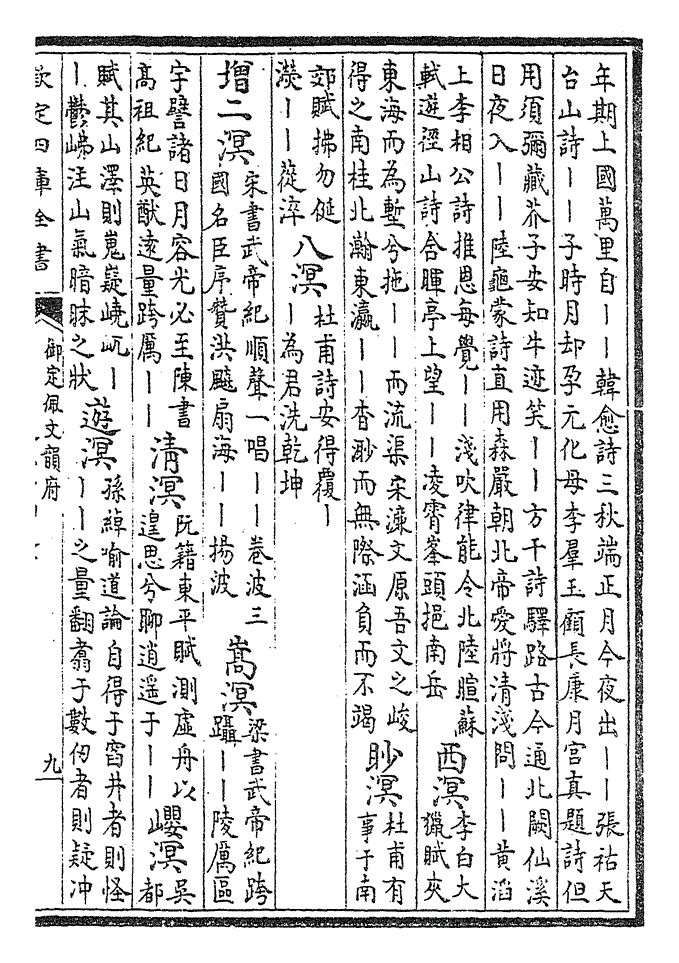 年期上國萬里自｜｜韓愈詩三秋端正月今夜出｜｜張祜天
台山詩｜｜子時月却孕元化母李羣玉顧長康月宮真題詩但
用須彌藏芥子安知牛迹笑｜｜方干詩驛路古今通北闕仙溪
日夜入｜｜陸龜蒙詩直用森嚴朝北帝愛將清淺問｜｜黃滔
上李相公詩推恩每覺｜｜淺吹律能令北陸暄蘇
軾遊徑山詩含暉亭上望｜｜凌霄峯頭挹南岳
西溟
李白大
獵賦夾
東海而為塹兮拖｜｜而流渠宋濂文原吾文之峻
得之南桂北瀚東瀛｜｜杳眇而無際涵負而不竭
眇溟
杜甫有
事于南
郊賦拂勿侹
濙｜｜蓯淬
八溟
杜甫詩安得覆｜
｜為君洗乾坤
增二溟
宋書武帝紀順聲一唱｜｜卷波三
國名臣序贊洪飈扇海｜｜揚波
嵩溟
梁書武帝紀跨
躡｜｜陵厲區
宇譬諸日月容光必至陳書
高祖紀英猷遠量跨厲｜｜
清溟
阮籍東平賦測虛舟以
遑思兮聊逍遥于｜｜
巊溟
吳
都
賦其山澤則嵬嶷嶢屼｜
｜鬱岪注山氣暗昧之狀
遊溟
孫綽喻道論自得于窞井者則怪
｜｜之量翻翥于數仞者則疑冲
欽定四庫全書
御定佩文韻府
九